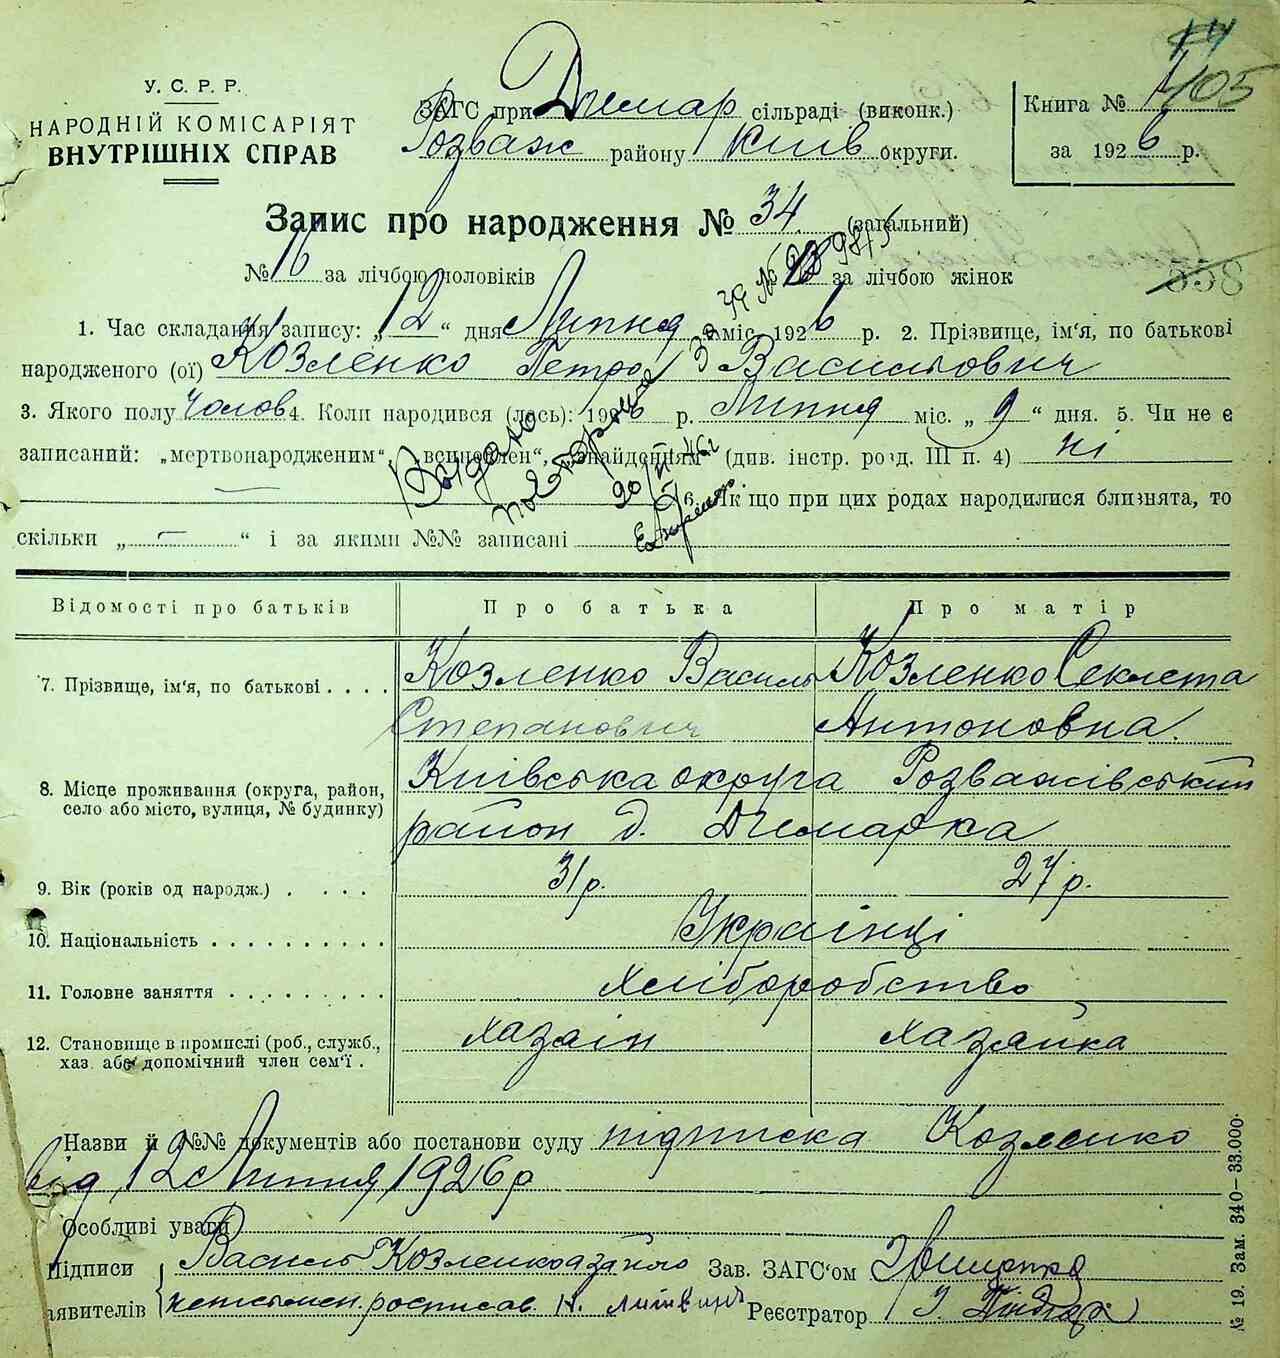 У. С. Р. Р.
НАРОДНІЙ КОМІСАРІЯТ
ВНУТРІШНІХ СПРАВ
ЗАГС при Джмар сільраді (виконк.)
Розваж району Київ округи.
Книга №
405
за 1926 р.
Запис про народження № 34 (загальний)
№ 16 за лічбою чоловіків № за лічбою жінок
558
1. Час складання запису: „12“ дня Липня міс. 1926 р. 2. Прізвище, ім‘я, по батькові
народженого (ої) Козленко Петро Васильович
3. Якого полу чолов 4. Коли народився (лась): 1926 р. Липня міс. „9“ дня. 5. Чи не є
записаний: „мертвонародженим“, „всиновлен“, „знайденям“ (див. інстр. розд. III п. 4) ні
6. Як що при цих родах народилися близнята, то
скільки „ “ і за якими №№ записані
Выдано
повторное
Відомості про батьків Про батька Про матір
7. Прізвище, ім‘я, по батькові . . . . Козленко Василь Козленко Секлета
Степанович Антоновна
8. Місце проживання (округа, район, село або місто, вулиця, № будинку) Київська округа Розважівський
район д. Джмарка
9. Вік (років од народж.) . . . . 31 р. 27 р.
10. Національність . . . . . . . . . . Українці
11. Головне заняття . . . . . . . . . хліборобство
12. Становище в промислі (роб., служб., хаз. або допомічний член сем‘ї . хазяін хазяйка
Назви й №№ документів або постанови суду підписка Козленко
від 12 Липня 1926 р
Особливі уваги
Підписи Василь Козленко а за його Зав. ЗАГС‘ом
аявителів неписьмен. росписав. Н. Литвинъ Реєстратор
№ 19. Зам. 340—33.000.